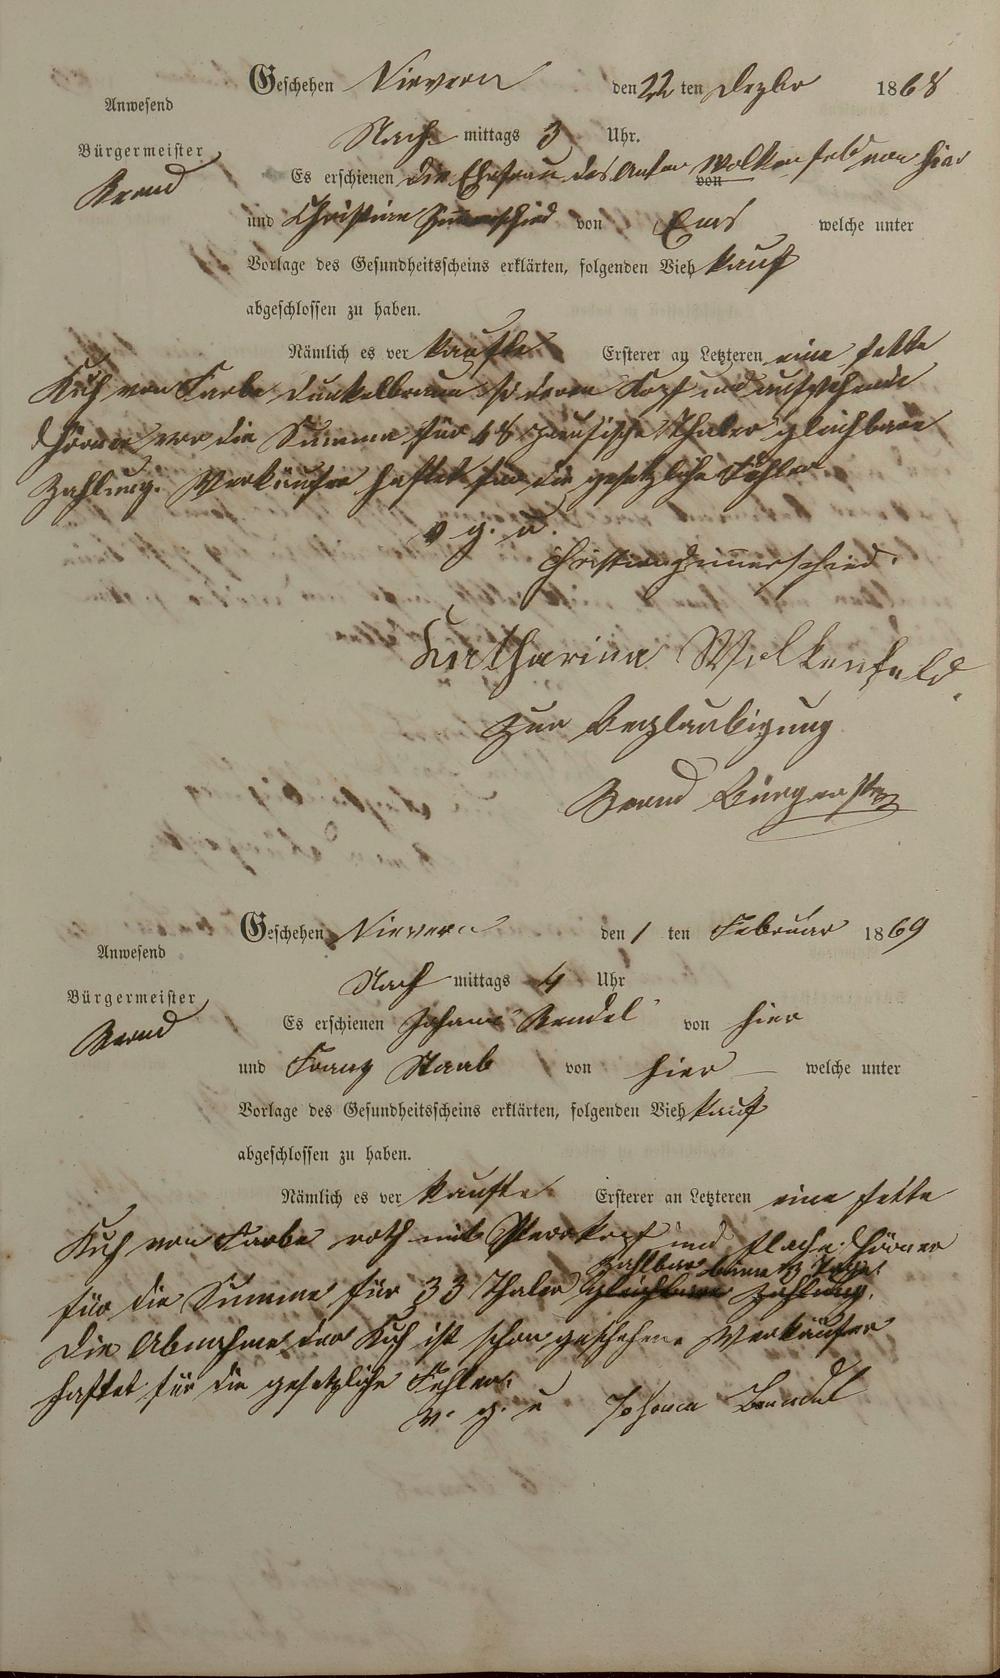 Geschehen Nievern den 22 ten Dezbr 1868
Anwesend
Nach mittags 3 Uhr.
Bürgermeister
Es erschienen die Ehefrau des Anton Wolkenfeld von hier
und Christian Zimmerschied von Ems welche unter
Vorlage des Gesundheitsscheins erklärten, folgenden Vieh kauf
abgeschlossen zu haben.
Nämlich es ver kaufte Ersterer an Letzteren eine fette
Kuh von Farbe dunkelbraun Kopf und aufstehende
Hörner vor die Summe für 48 Thaler gleichbare
Zahlung. Verkäufer haftet für die gesetzliche Fehler.
v. g. u.
Christian Zimmerschied.
Katharina Wolkenfeld.
Zur Beglaubigung
Bürgermstr
Geschehen Nievern den 1 ten Februar 1869
Anwesend
Nach mittags 4 Uhr
Bürgermeister
Es erschienen Johann Bendel von hier
und Franz Staab von hier welche unter
Vorlage des Gesundheitsscheins erklärten, folgenden Vieh kauf
abgeschlossen zu haben.
Nämlich es ver kaufte Ersterer an Letzteren eine fette
Kuh von Farbe roth mit und flache Hörner
zahlbar binnen 3 Tage.
für die Summe für 33 Thaler gleichbare Zahlung.
Die Abnahme der Kuh ist schon geschehene Verkäufer
haftet für die gesetzliche Fehler.
v. g. u Johann Bendel